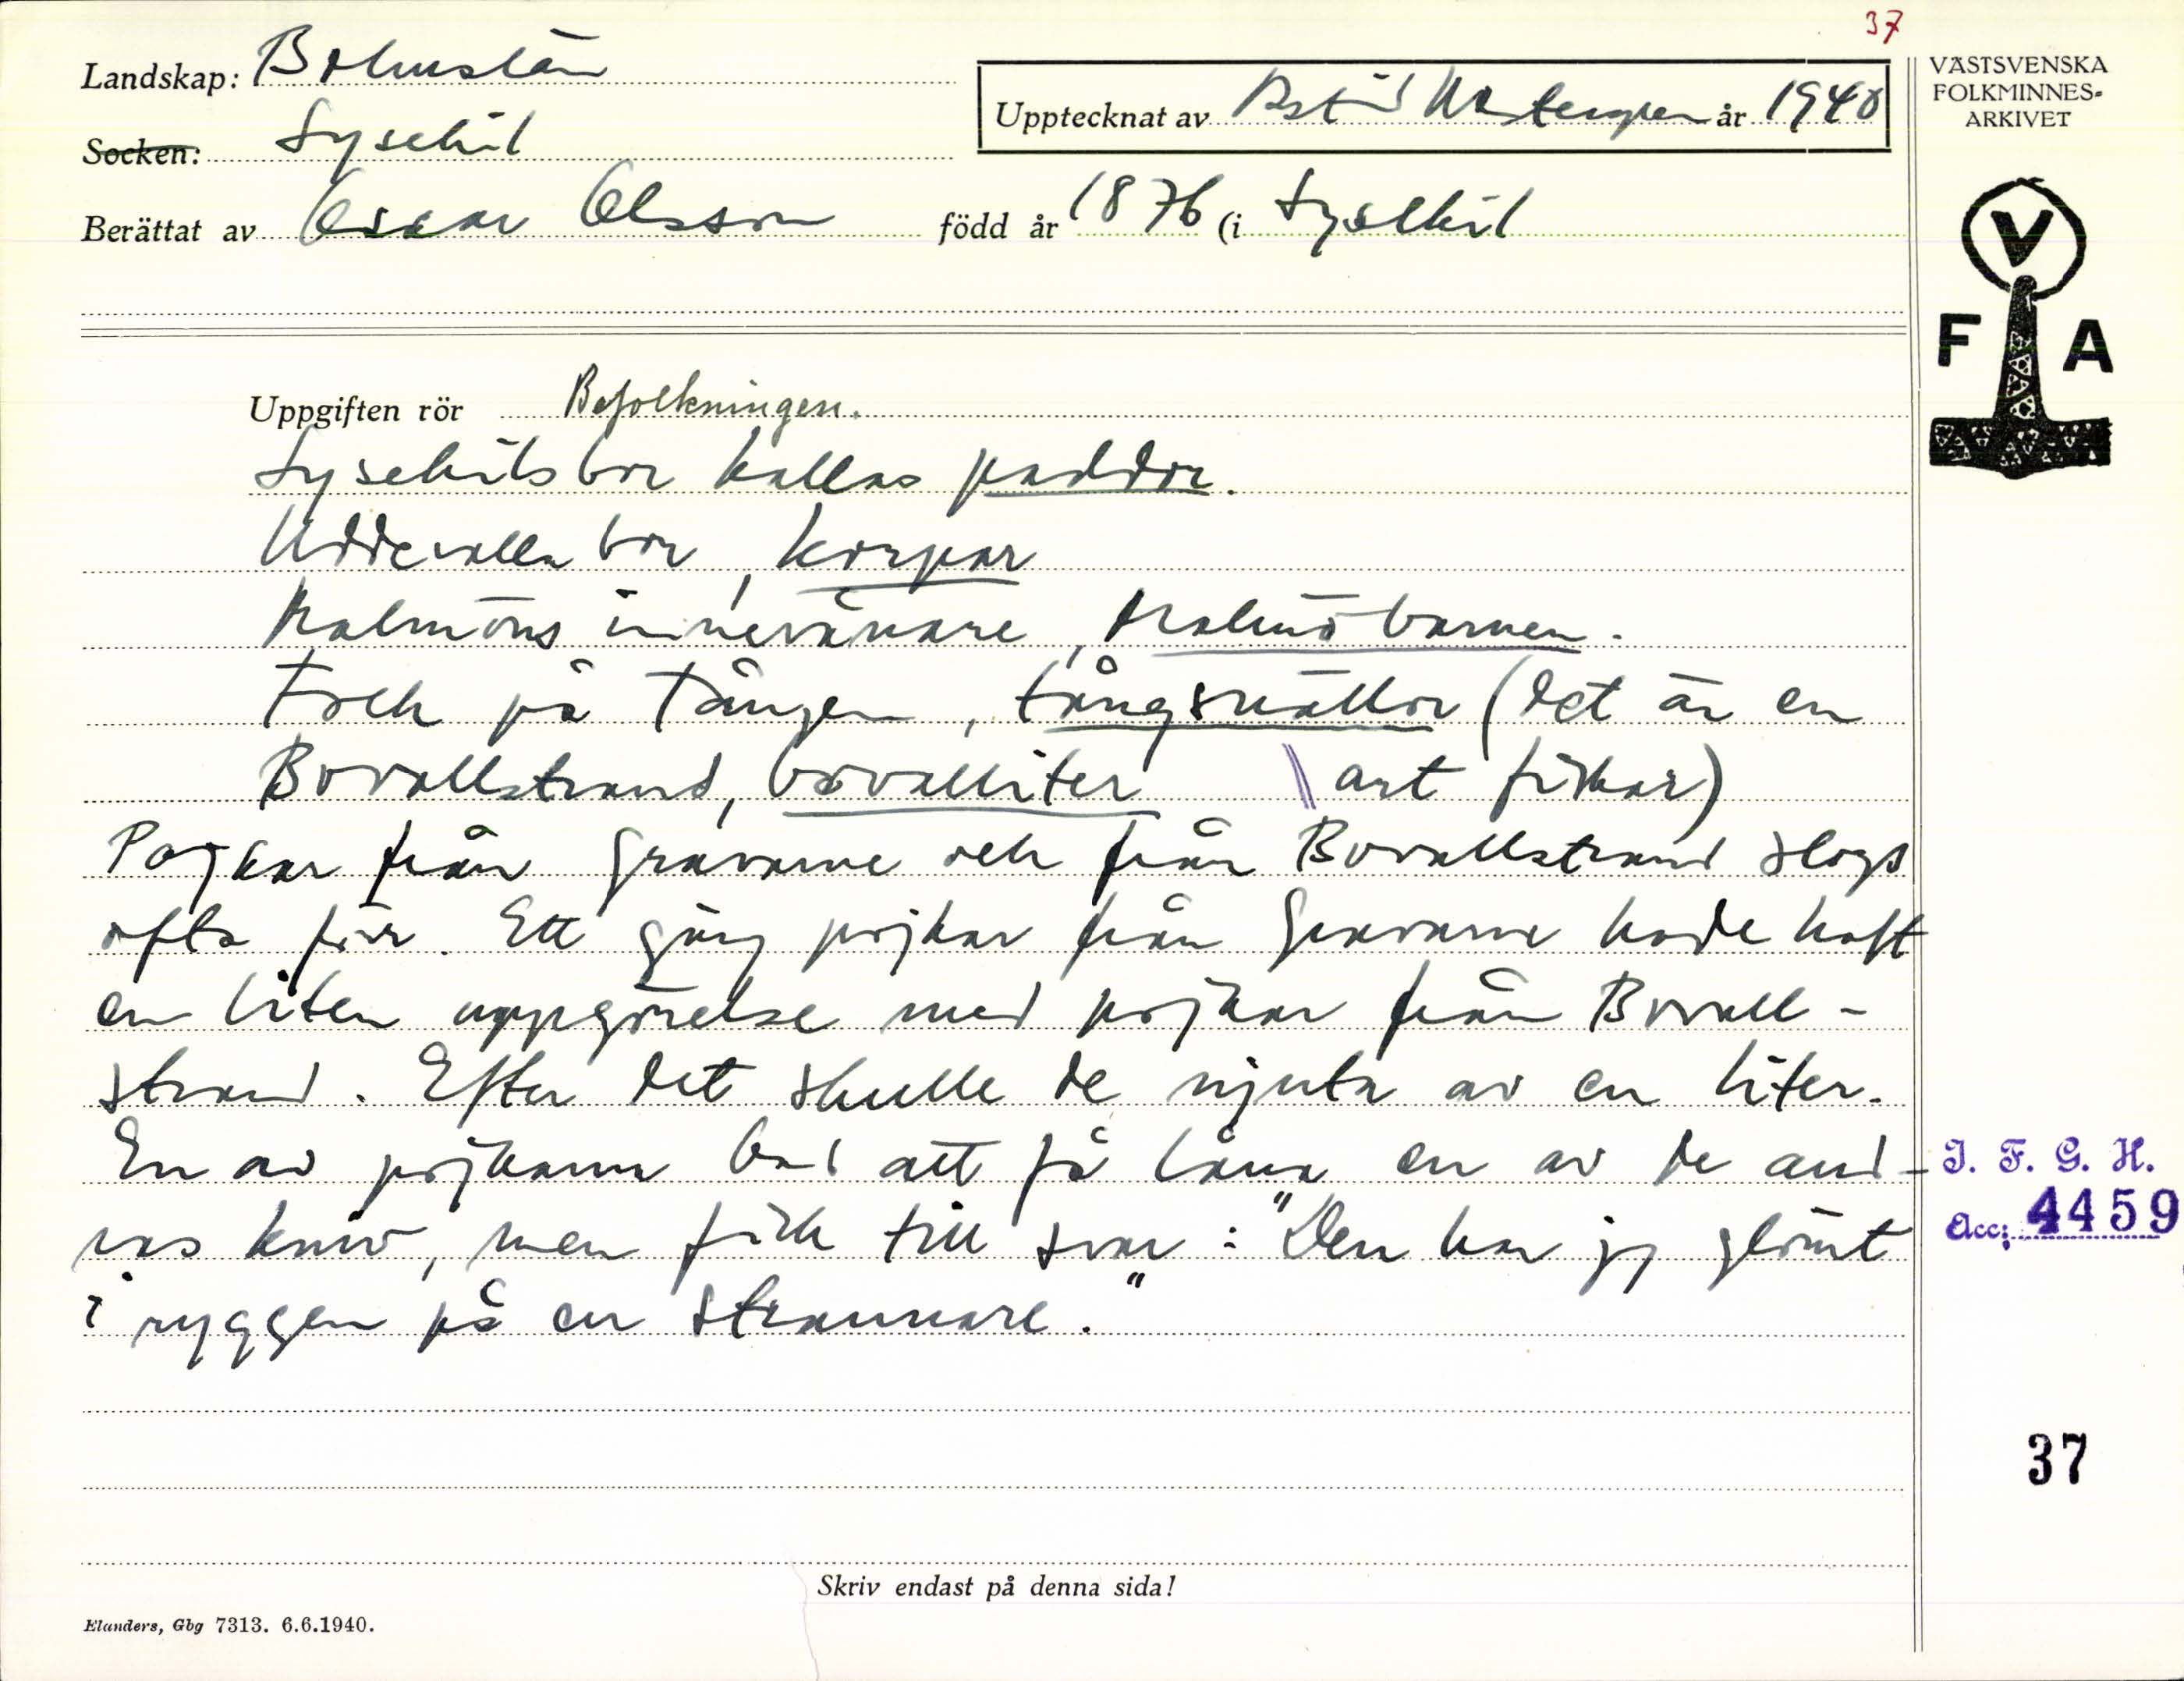 37
Landskap: Bohuslän
Upptecknat av Astrid Westergren år 1940
VÄSTSVENSKA
FOLKMINNES-
ARKIVET
Socken: Lysekil
Berättat av Oskar Olsson född år 1876 (i Lysekil
V
F A
Uppgiften rör Befolkningen.
Lysekilsbor kallas paddor.
Uddevallabor, korpar
Malmöns innevånare, Malmöbarnen.
Folk på Tången, tångsnällor (det är en
Bovallstrand, bovalliter art fiskar)
Pojkar från Gravarne och från Bovallstrand slogs
ofta förr. Ett gäng pojkar från Gravarne hade haft
en liten uppgörelse med pojkar från Bovall-
strand. Efter det skulle de njuta av en liter.
En av pojkarna bad att få låna en av de and-
ras kniv, men fick till svar: "Den har jag glömt
i ryggen på en strannare."
I. F. G. H.
Acc: 4459
37
Skriv endast på denna sida!
Elanders, Gbg 7313. 6.6.1940.